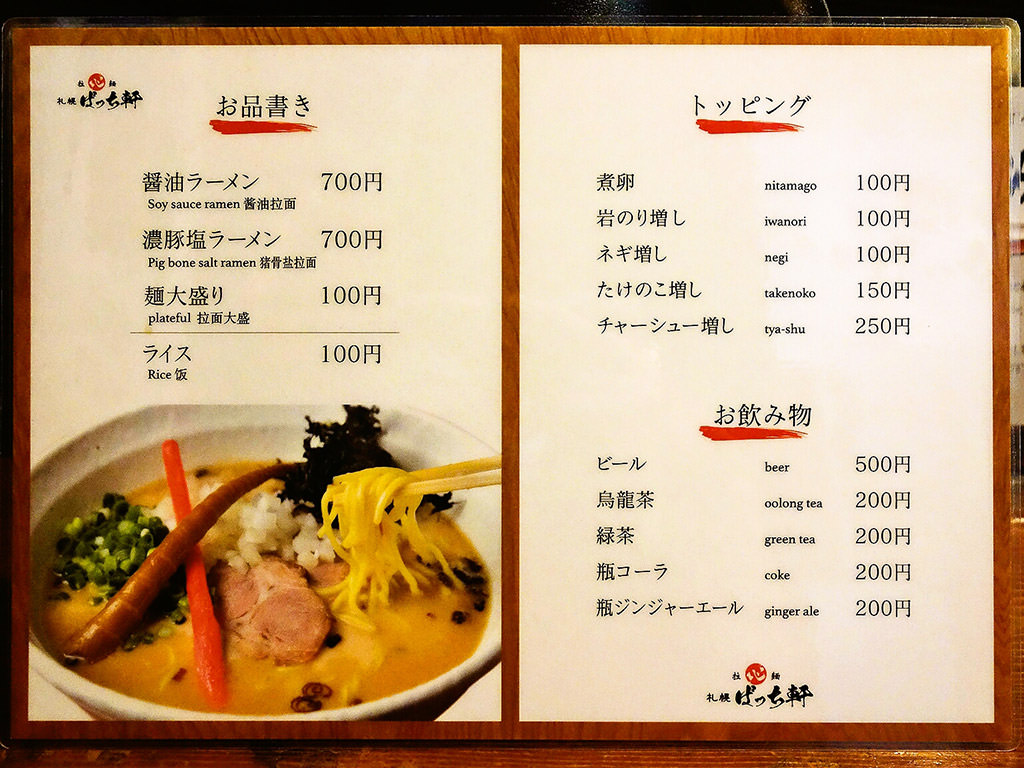 拉 麺
札幌 ばっち軒
お品書き
醤油ラーメン 700円
Soy sauce ramen 酱油拉面
濃豚塩ラーメン 700円
Pig bone salt ramen 猪骨盐拉面
麺大盛り 100円
plateful 拉面大盛
ライス 100円
Rice 饭
トッピング
煮卵 nitamago 100円
岩のり増し iwanori 100円
ネギ増し negi 100円
たけのこ増し takenoko 150円
チャーシュー増し tya-shu 250円
お飲み物
ビール beer 500円
烏龍茶 oolong tea 200円
緑茶 green tea 200円
瓶コーラ coke 200円
瓶ジンジャーエール ginger ale 200円
拉 麺
札幌 ばっち軒